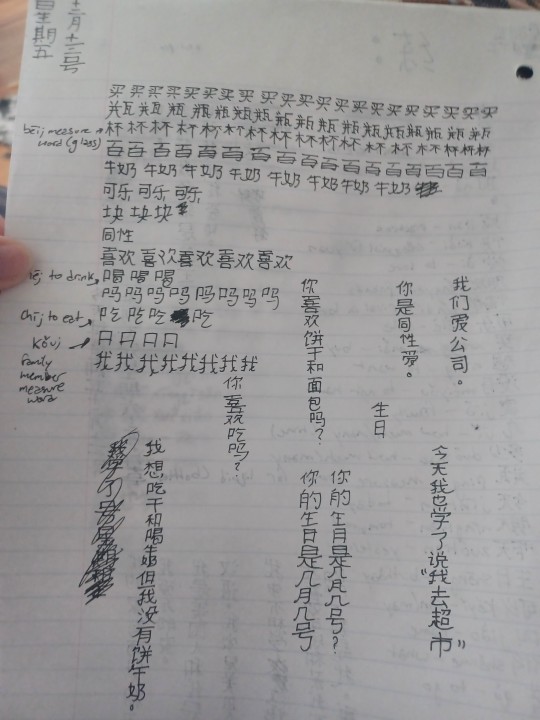 十二月十二号
星期五
买买买买买买买买买买买买买买买买买买买买
瓶瓶瓶瓶瓶瓶瓶瓶瓶瓶瓶瓶瓶瓶瓶瓶
bēi measure word (glass)
杯杯杯杯杯杯杯杯杯杯杯杯杯杯杯杯杯
百百百百百百百百百百百百百百百
牛奶 牛奶 牛奶 牛奶 牛奶 牛奶 牛奶 牛奶
可乐 可乐 可乐
块 块 块
同性
喜欢 喜欢 喜欢 喜欢 喜欢
to drink
喝 喝 喝
吗 吗 吗 吗 吗 吗 吗 吗
chī to eat
吃 吃 吃 吃
kǒu
口 口 口 口
family member measure word
我 我 我 我 我 我 我 我
我们爱公司。
你是同性爱。
你喜欢饼干和面包吗?
生日
你喜欢吃吗?
今天我也学了说“我去超市”
你的生日是几月几号?
你的生日是几月几号
我想吃干和喝牛奶但我没有饼牛奶。